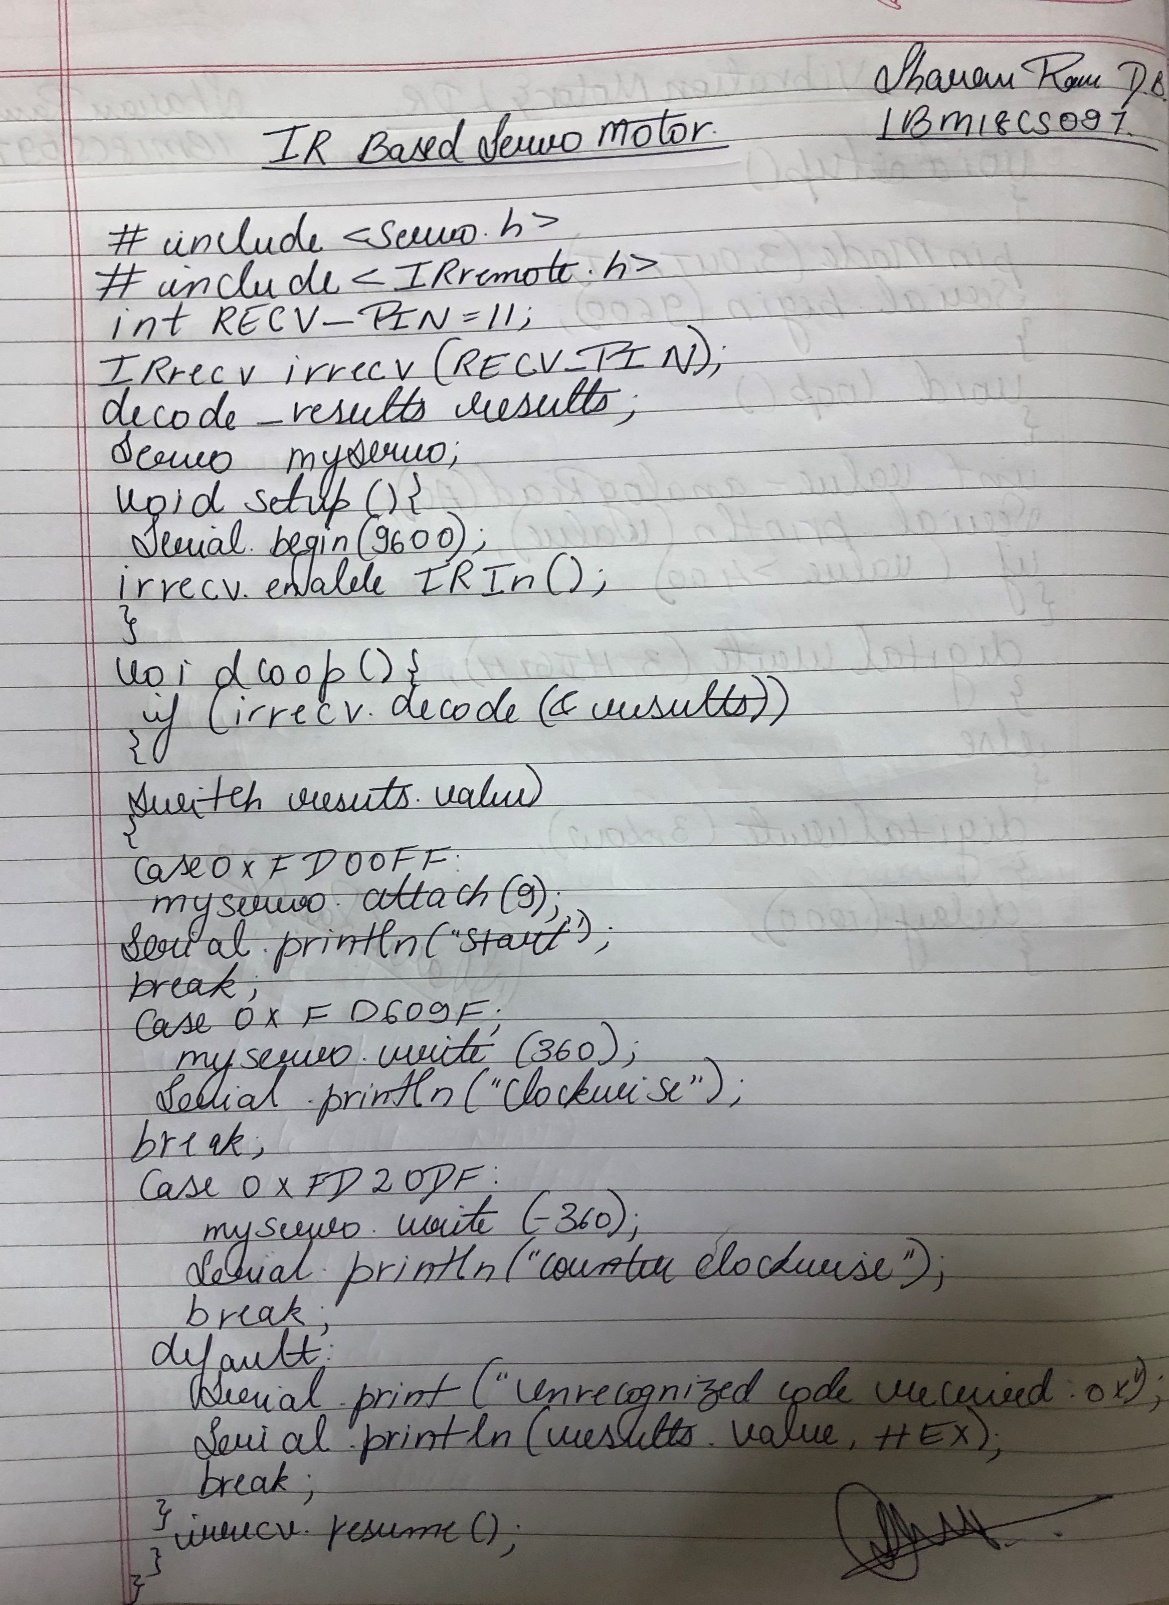 Sharan Ram D.B.
1BM18CS097.
IR Based Servo Motor.
# include <Servo.h>
# include < IRremote.h>
int RECV_PIN = 11;
IRrecv irrecv (RECV_PIN);
decode_results results;
Servo myservo;
void setup () {
Serial. begin (9600);
irrecv. enable IRIn ();
}
void loop () {
if (irrecv. decode (& results))
{
Switch results. value)
{
Case 0xFD00FF:
myservo. attach (9);
Serial. println ("Start");
break;
Case 0xFD609F;
myservo. write (360);
Serial. println ("Clockwise");
break;
Case 0xFD20DF:
myservo. write (-360);
Serial. println ("counter clockwise");
break;
default:
Serial. print ("Unrecognized code received: 0x");
Serial. println (results. value, HEX);
break;
} irrecv. resume ();
}
}